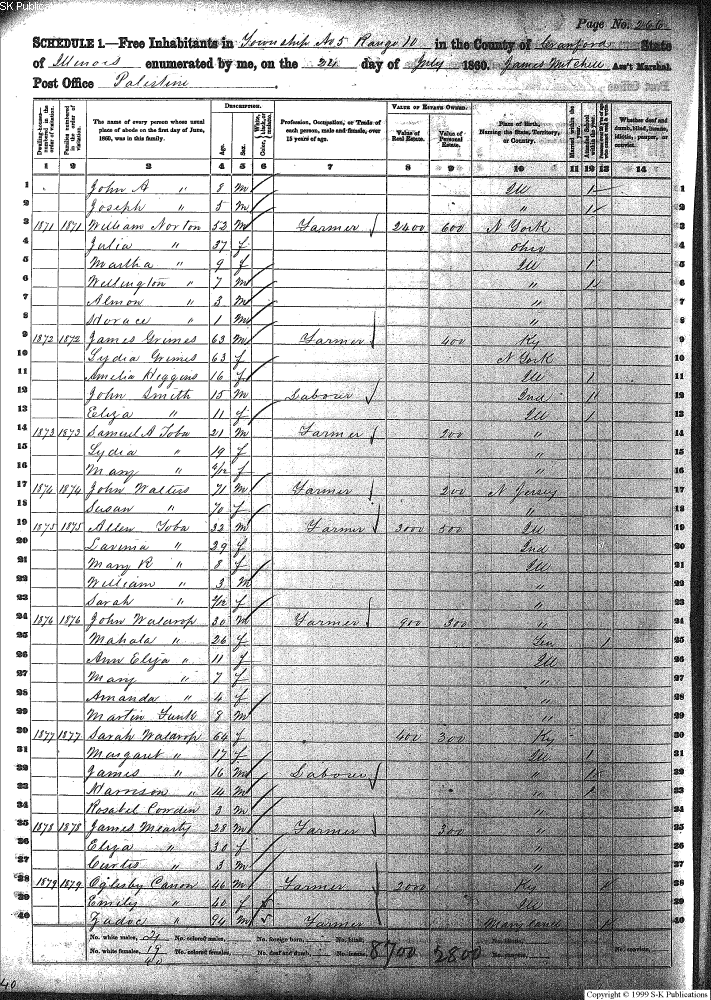 SK Publica
Page No. 266
SCHEDULE 1.—Free Inhabitants in Township No 5 Range 10 in the County of Crawford State
of Illinois enumerated by me, on the 24 day of July 1860. James Mitchell Ass't Marshal.
Post Office Palestine
DESCRIPTION. VALUE OF ESTATE OWNED.
Dwelling-houses—numbered in the order of visitation. Families numbered in the order of visitation. The name of every person whose usual place of abode on the first day of June, 1860, was in this family. Age. Sex. Color, Profession, Occupation, or Trade of each person, male and female, over 15 years of age. Value of Real Estate. Value of Personal Estate. Place of Birth, Naming the State, Territory, or Country. Married within the Whether deaf and dumb, blind, insane, idiotic, pauper, or convict.
1 2 3 4 5 6 7 8 9 10 11 12 13 14
1 John A " 8 m Ill 1 1
2 Joseph " 5 m " 1 2
3 1871 1871 William Norton 52 m Farmer 2400 600 N York 3
4 Julia " 37 f Ohio 4
5 Martha " 9 f Ill 1 5
6 Wellington " 7 m " 1 6
7 Almon " 3 m " 7
8 Horace " 1 m " 8
9 1872 1872 James Grimes 63 m Farmer 400 Ky 9
10 Lydia Grimes 63 f N York 10
11 Amelia Higgins 16 f Ill 1 11
12 John Smith 15 m Labourer Ind 1 12
13 Eliza " 11 f Ill 1 13
14 1873 1873 Samuel A Toba 21 m Farmer 200 " 14
15 Lydia " 19 f " 15
16 Mary " f " 16
17 1874 1874 John Walters 71 m Farmer 200 N Jersey 17
18 Susan " 70 f " 18
19 1875 1875 Allen Toba 32 m Farmer 3000 500 Ill 19
20 Lavinia " 29 f Ind 20
21 Mary R " 8 f Ill 21
22 William " 3 m " 22
23 Sarah " f " 23
24 1876 1876 John Waldrop 30 m Farmer 900 300 " 24
25 Mahala " 26 f Ten 1 25
26 Ann Eliza " 11 f Ill 26
27 Mary " 7 f 27
28 Amanda " 4 f " 28
29 Martin Funk 8 m " 29
30 1877 1877 Sarah Waldrop 64 f 400 300 Ky 30
31 Margaret " 17 f Ill 1 31
32 James " 16 m Labourer " 1 32
33 Harrison " 14 m " 1 33
34 Rosabel Cowden 3 m " 34
35 1878 1878 James Mearty 28 m Farmer 300 " 35
36 Eliza " 30 f 36
37 Curtis " 3 m " 37
38 1879 1879 Oglesby Canon 46 m Farmer 2000 Ky 38
39 Emily " 40 f Ill 39
40 Zadoc " 94 m Farmer Maryland 40
No. white males, 21 No. colored males, No. foreign born, No. blind, 8700 5800 No. idiotic, No. convicts,
No. white females, 19 No. colored females, No. deaf and dumb, No. insane, No. paupers,
40
Copyright © 1999 S-K Publications